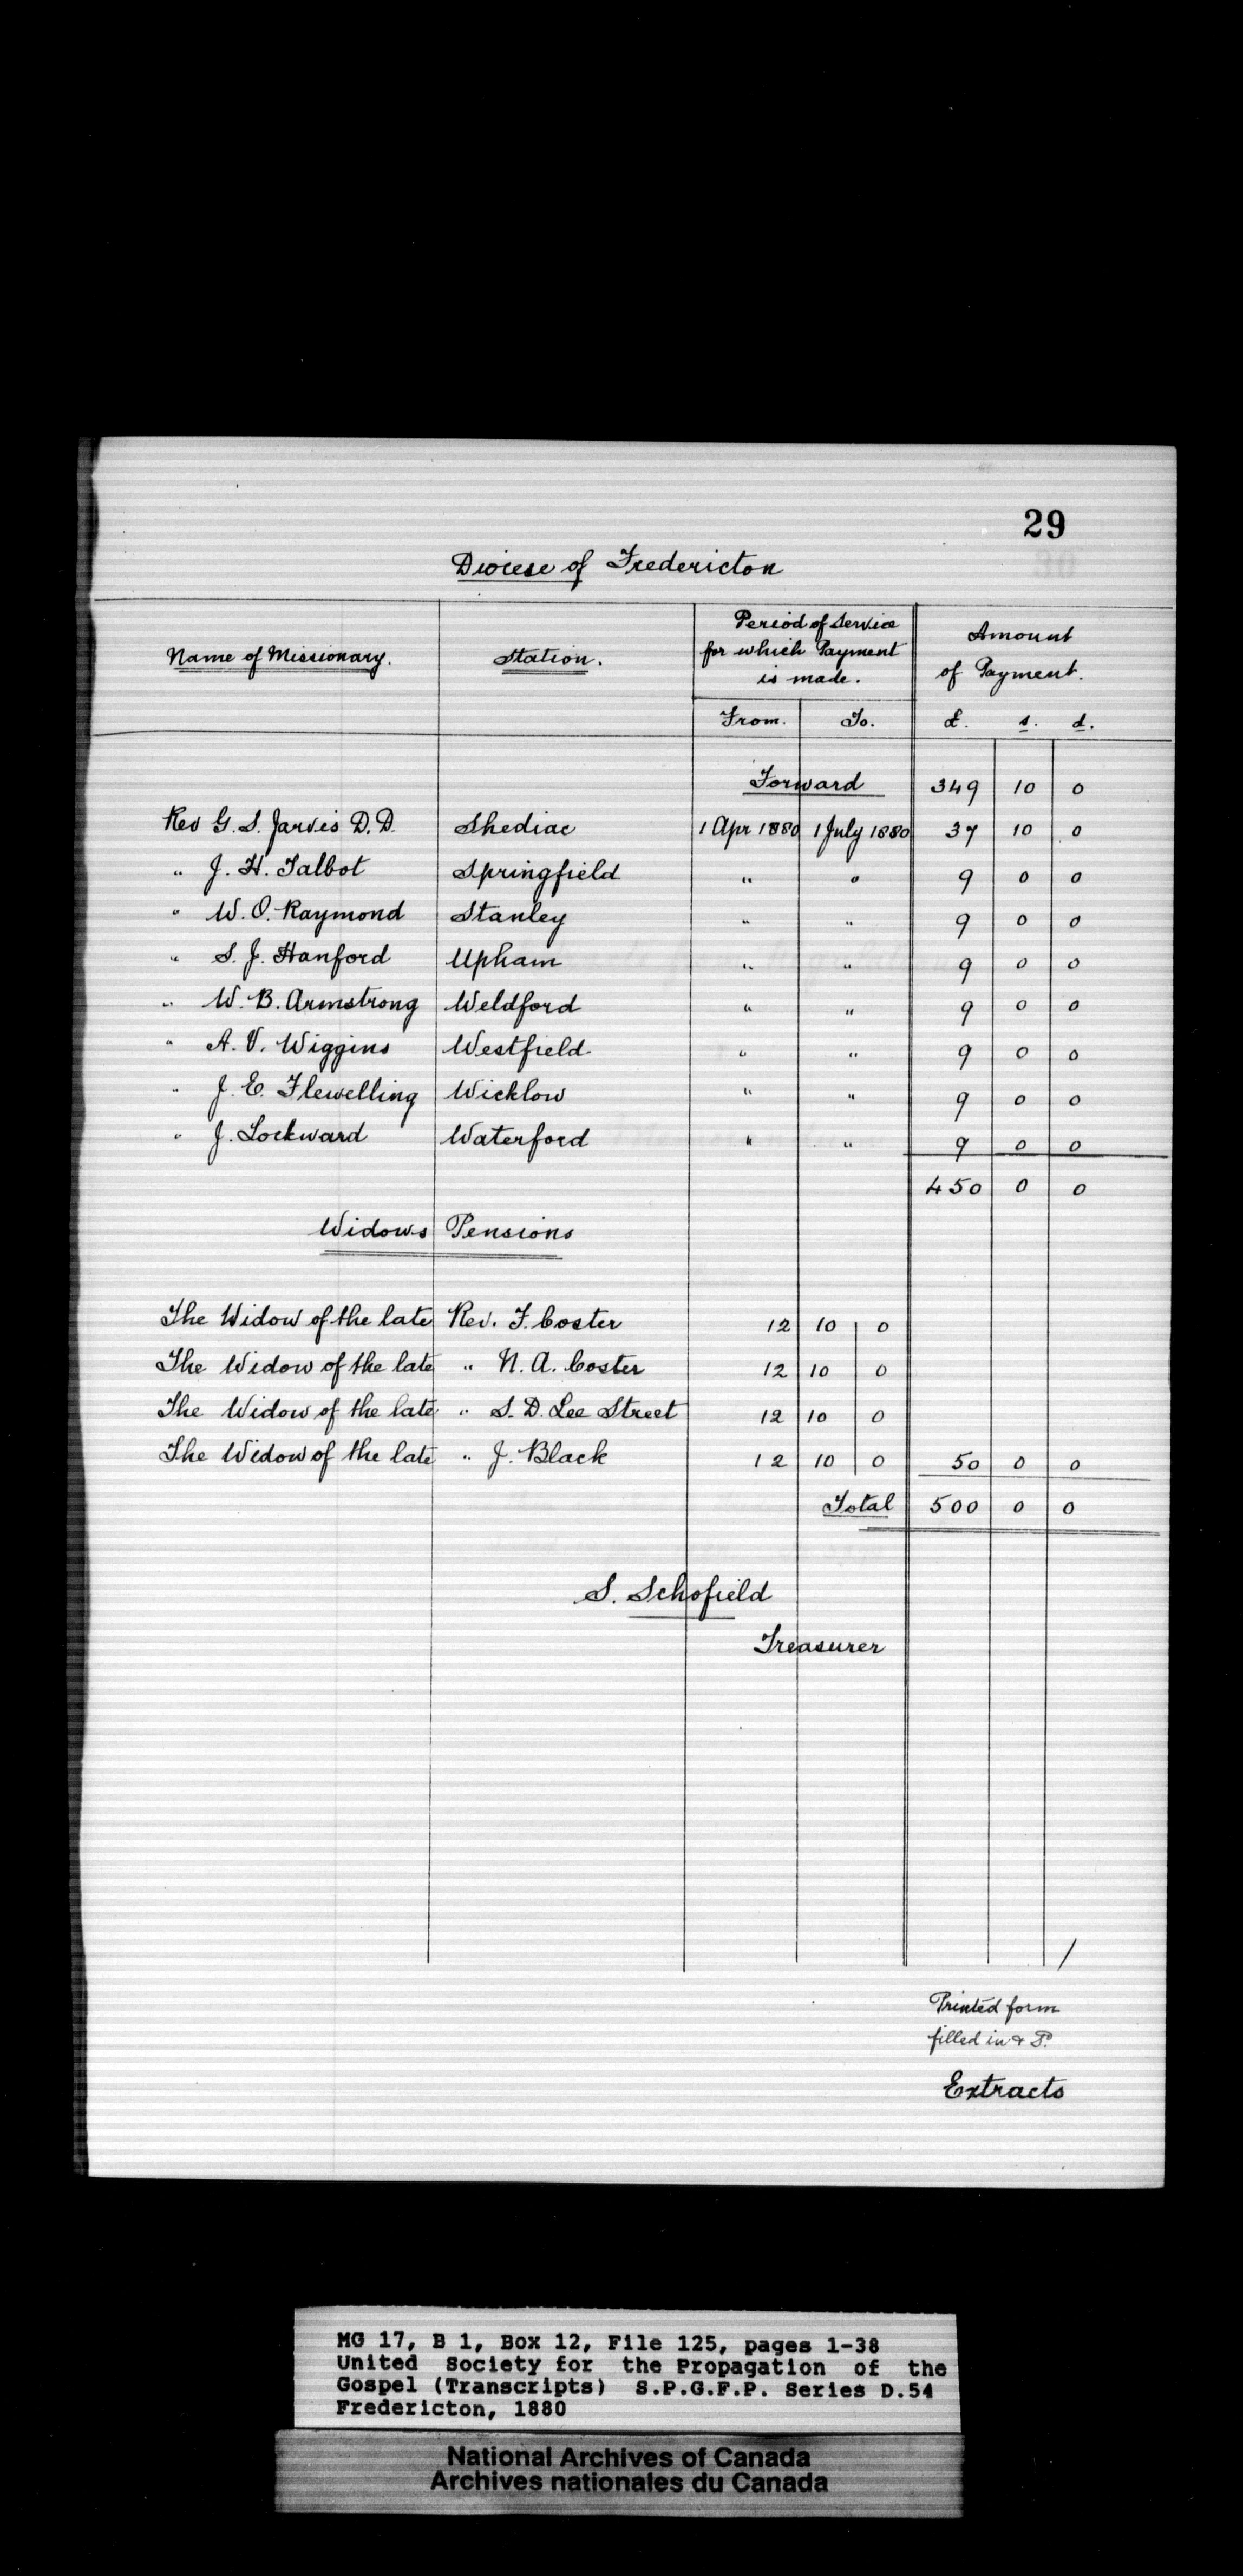 29
Diocese of Fredericton
Name of Missionary. Station. Period of Service for which Payment is made. Amount of Payment.
From. To. £. s. d.
Forward 349 10 0
Rev G. S. Jarvis D.D. Shediac 1 Apr 1880 1 July 1880 37 10 0
" J. H. Talbot Springfield " " 9 0 0
" W. O. Raymond Stanley " " 9 0 0
" S. J. Hanford Upham " " 9 0 0
" W. B. Armstrong Weldford " " 9 0 0
" A. V. Wiggins Westfield " " 9 0 0
" J. E. Flewelling Wicklow " " 9 0 0
" J. Lockward Waterford " " 9 0 0
450 0 0
Widows Pensions
The Widow of the late Rev. F. Coster 12 10 0
The Widow of the late " N. A. Coster 12 10 0
The Widow of the late " S. D. Lee Street 12 10 0
The Widow of the late " J. Black 12 10 0 50 0 0
Total 500 0 0
S. Schofield
Treasurer
Printed form
filled in &
Extracts
MG 17, B 1, Box 12, File 125, pages 1-38
United Society for the Propagation of the
Gospel (Transcripts) S.P.G.F.P. Series D.54
Fredericton, 1880
National Archives of Canada
Archives nationales du Canada